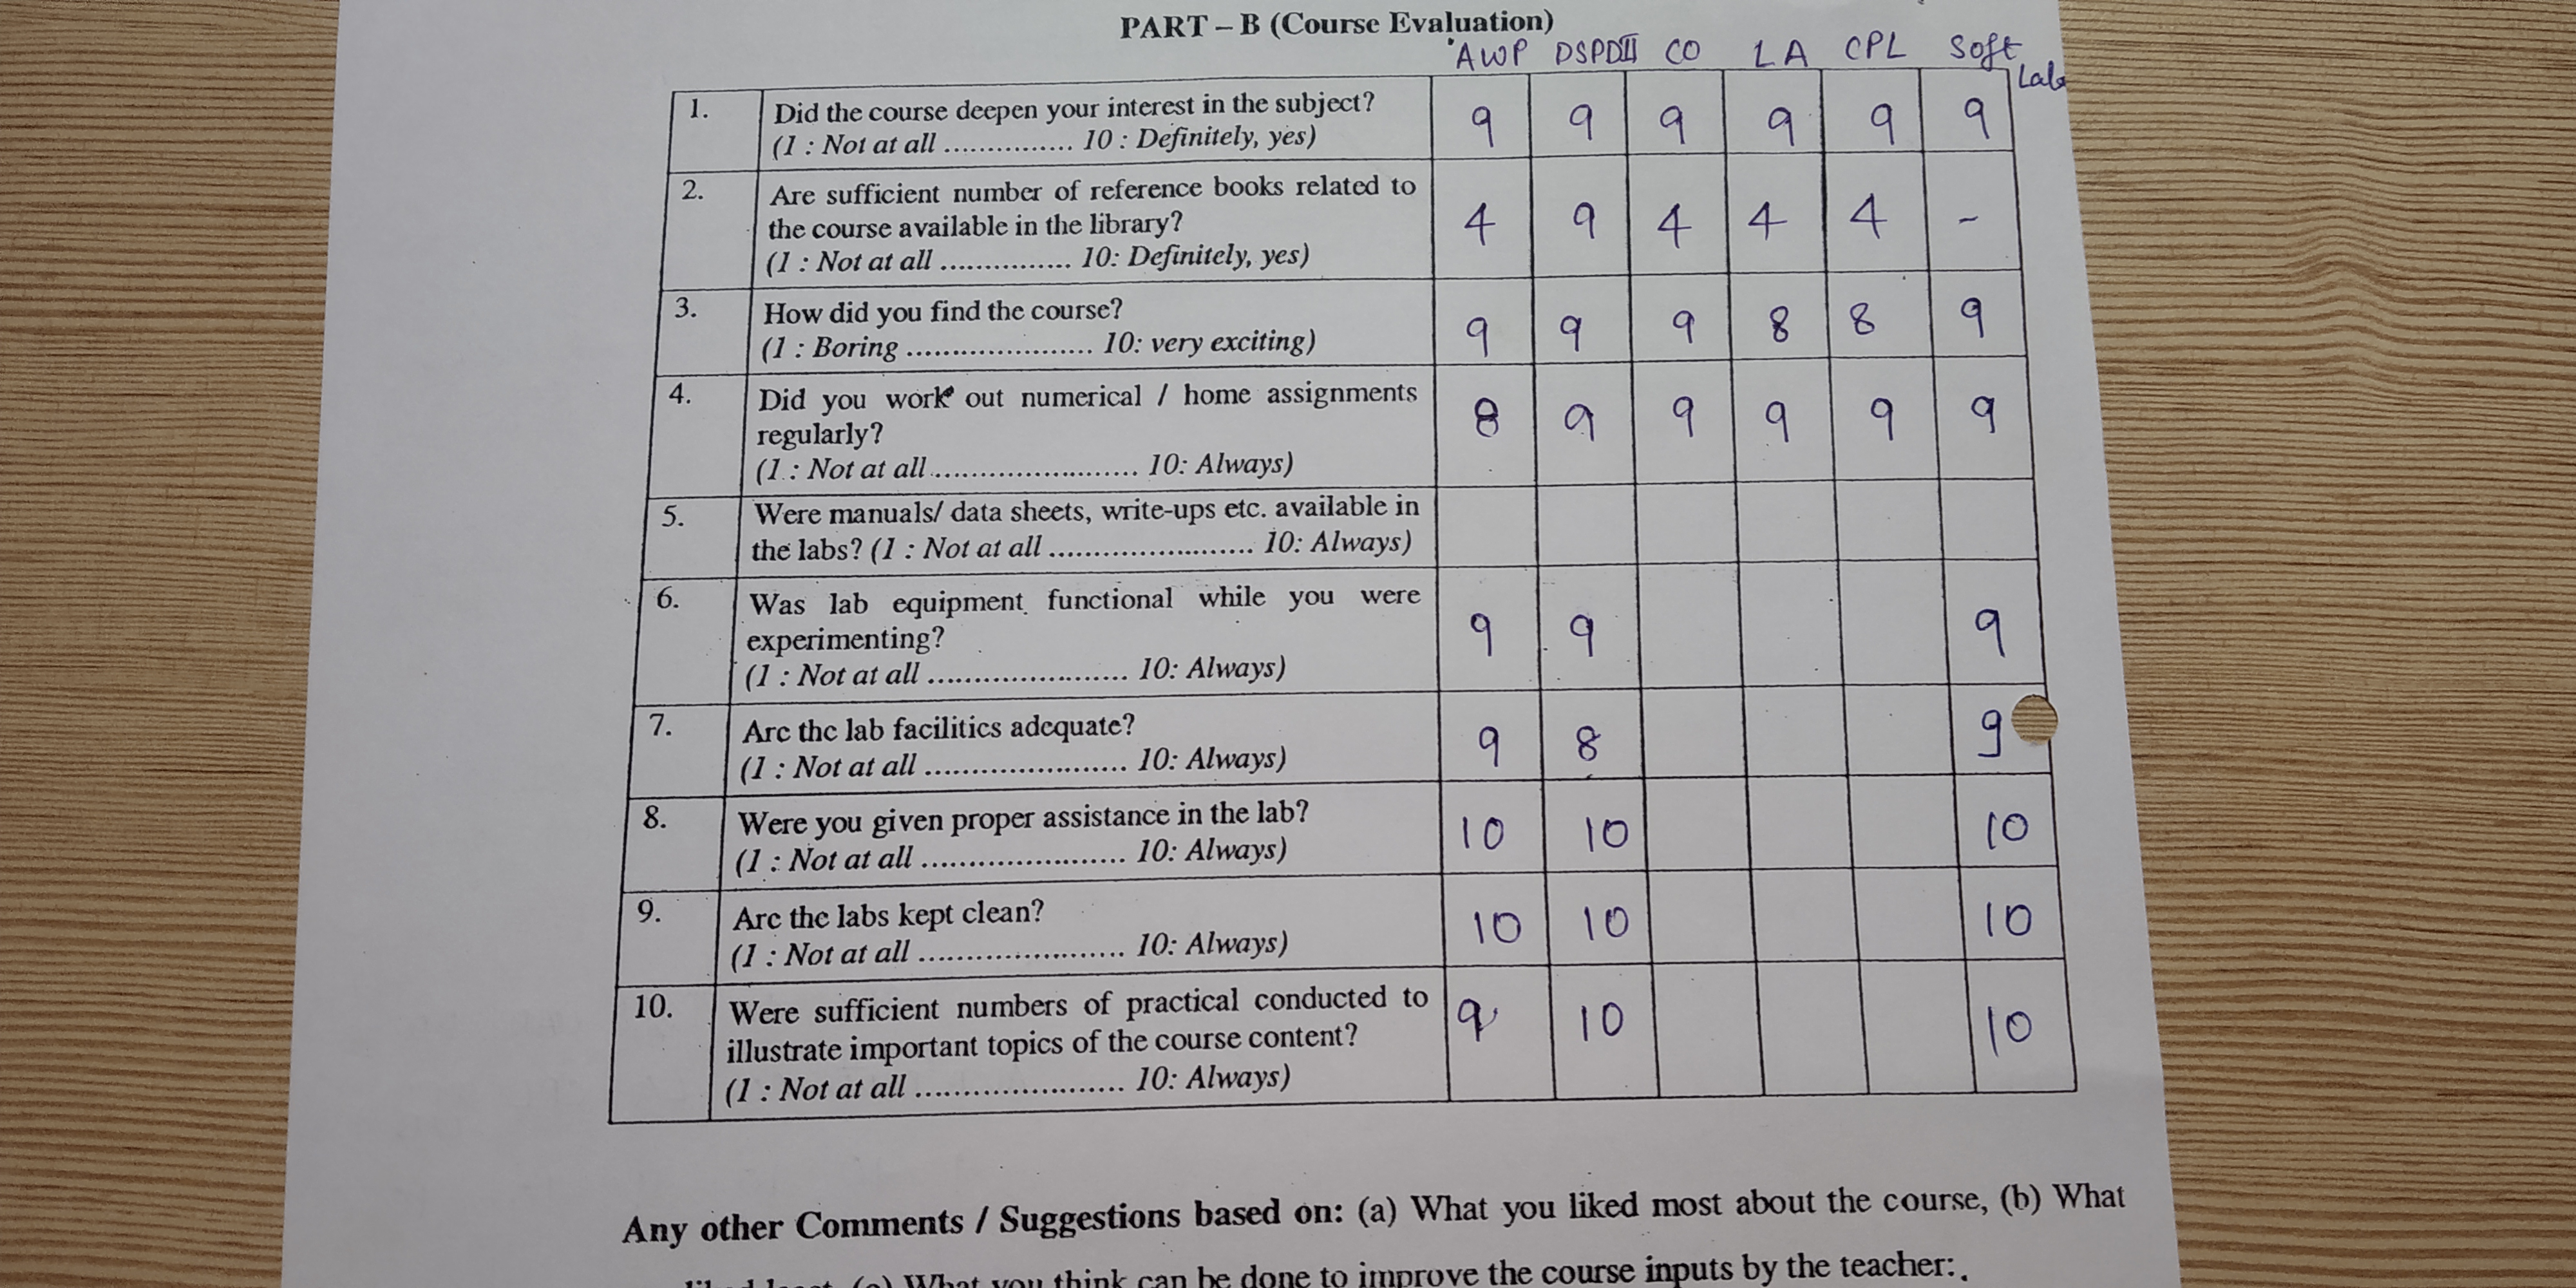 PART – B (Course Evaluation)
AWP DSPDII CO LA CPL Soft Lab
1. Did the course deepen your interest in the subject? 9 9 9 9 9 9
(1 : Not at all ............... 10 : Definitely, yes)
2. Are sufficient number of reference books related to
the course available in the library? 4 9 4 4 4 -
(1 : Not at all ............... 10: Definitely, yes)
3. How did you find the course? 9 9 9 8 8 9
(1 : Boring ...................... 10: very exciting)
4. Did you work out numerical / home assignments
regularly? 8 9 9 9 9 9
(1 : Not at all ........................ 10: Always)
5. Were manuals/ data sheets, write-ups etc. available in
the labs? (1 : Not at all ........................ 10: Always)
6. Was lab equipment functional while you were
experimenting? 9 9 9
(1 : Not at all ....................... 10: Always)
7. Are the lab facilities adequate? 9 8 9
(1 : Not at all ....................... 10: Always)
8. Were you given proper assistance in the lab? 10 10 10
(1 : Not at all ........................ 10: Always)
9. Are the labs kept clean? 10 10 10
(1 : Not at all ........................ 10: Always)
10. Were sufficient numbers of practical conducted to
illustrate important topics of the course content? 9 10 10
(1 : Not at all ........................ 10: Always)
Any other Comments / Suggestions based on: (a) What you liked most about the course, (b) What
liked least, (c) What you think can be done to improve the course inputs by the teacher:.